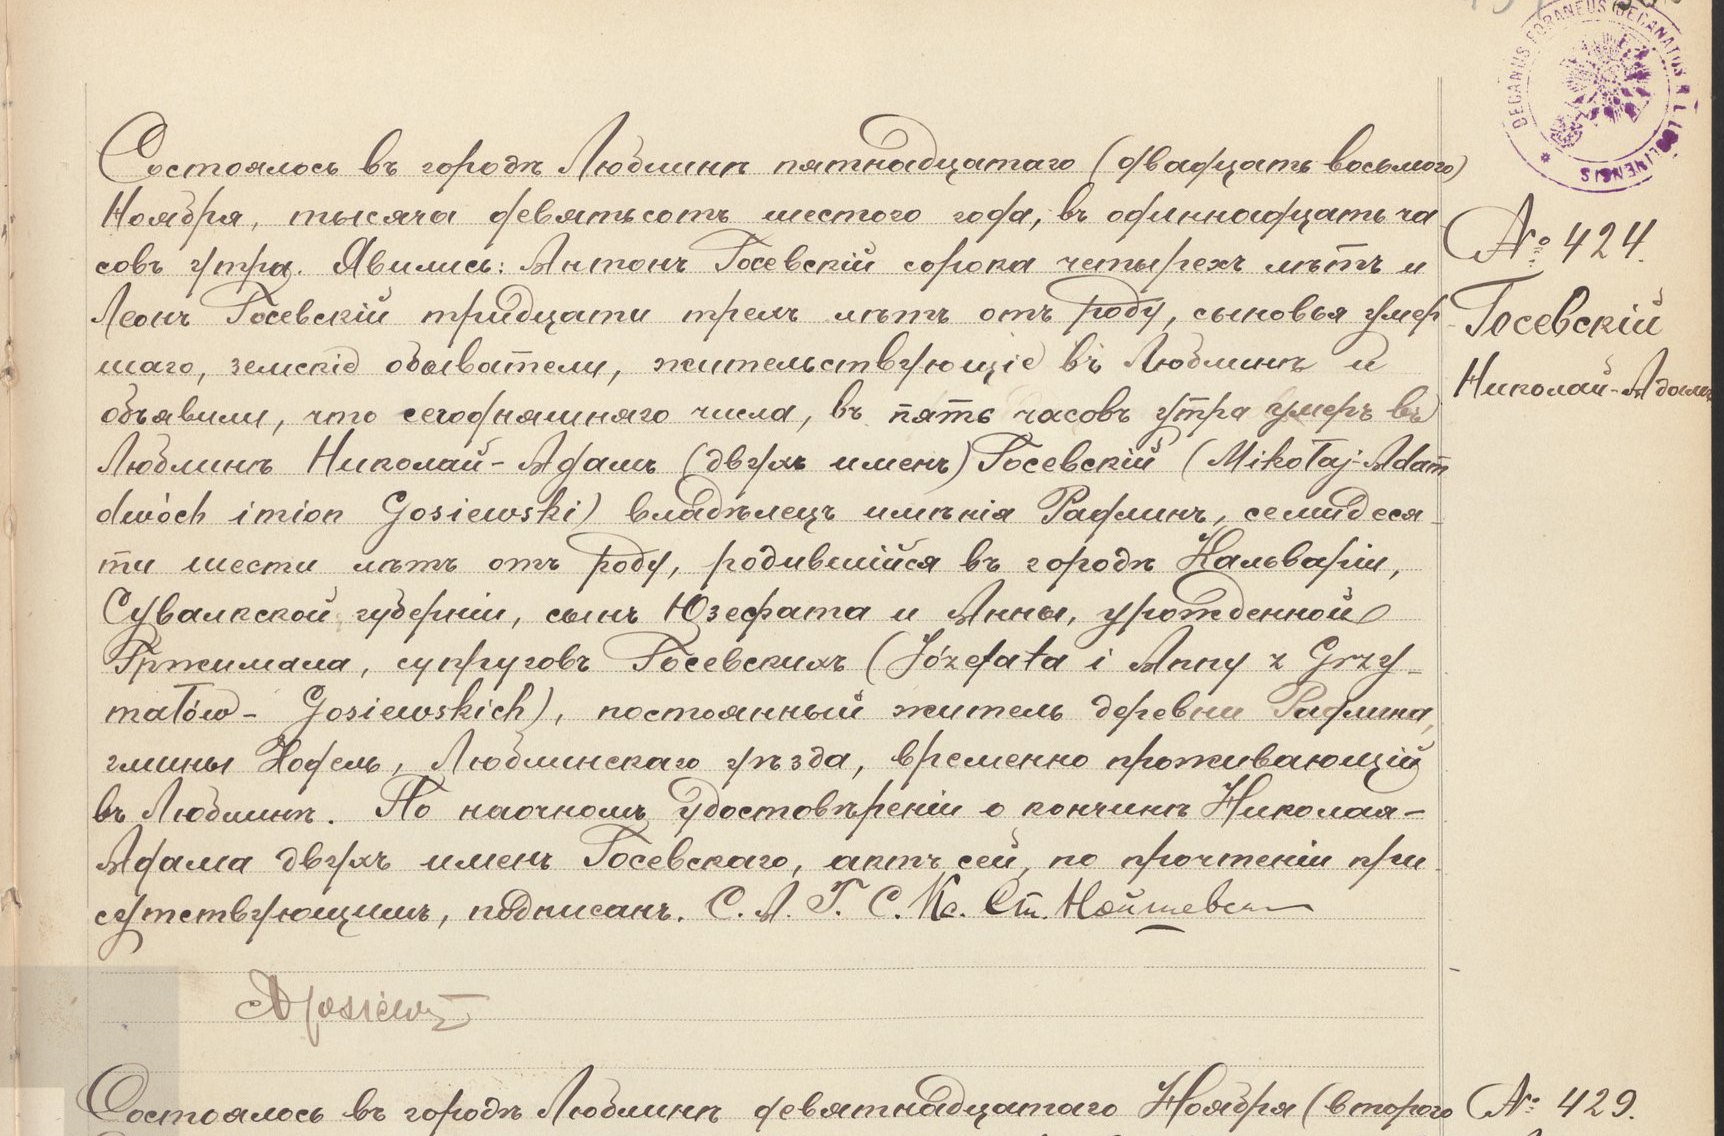 DECANUS FORANEUS DECANATUS LUBLINENSIS
Состоялось въ городѣ Люблинѣ пятнадцатаго (двадцать восьмого)
Ноября, тысяча девятьсотъ шестого года, въ одиннадцать ча
совъ утра. Явились: Антонъ Госевскій сорока четырехъ лѣтъ и
Леонъ Госевскій тридцати трехъ лѣтъ отъ роду, сыновья умер
шаго, земскіе обыватели, жительствующіе въ Люблинѣ и
объявили, что сегодняшняго числа, въ пять часовъ утра умеръ въ
Люблинѣ Николай-Адамъ (двухъ именъ) Госевскій (Mikołaj-Adam
dwóch imion Gosiewski) владѣлецъ имѣнія Радлинъ, семидеся-
ти шести лѣтъ отъ роду, родившійся въ городѣ Кальваріи,
Сувалкской губерніи, сынъ Юзефата и Анны, урожденной
Гржимала, супруговъ Госевскихъ (Józefata i Anny z Grzy-
małów- Gosiewskich), постоянный житель деревни Радлина,
гмины Ходель, Люблинскаго уѣзда, временно проживающій
въ Люблинѣ. По наочномъ удостовѣреніи о кончинѣ Николая-
Адама двухъ именъ Госевскаго, актъ сей, по прочтеніи при
сутствующимъ, подписанъ. С. А. Г. С. Кс. Ст.
№ 424.
Госевскій
Николай-Адамъ
Состоялось въ городѣ Люблинѣ девятнадцатаго Ноября (второго
№ 429.